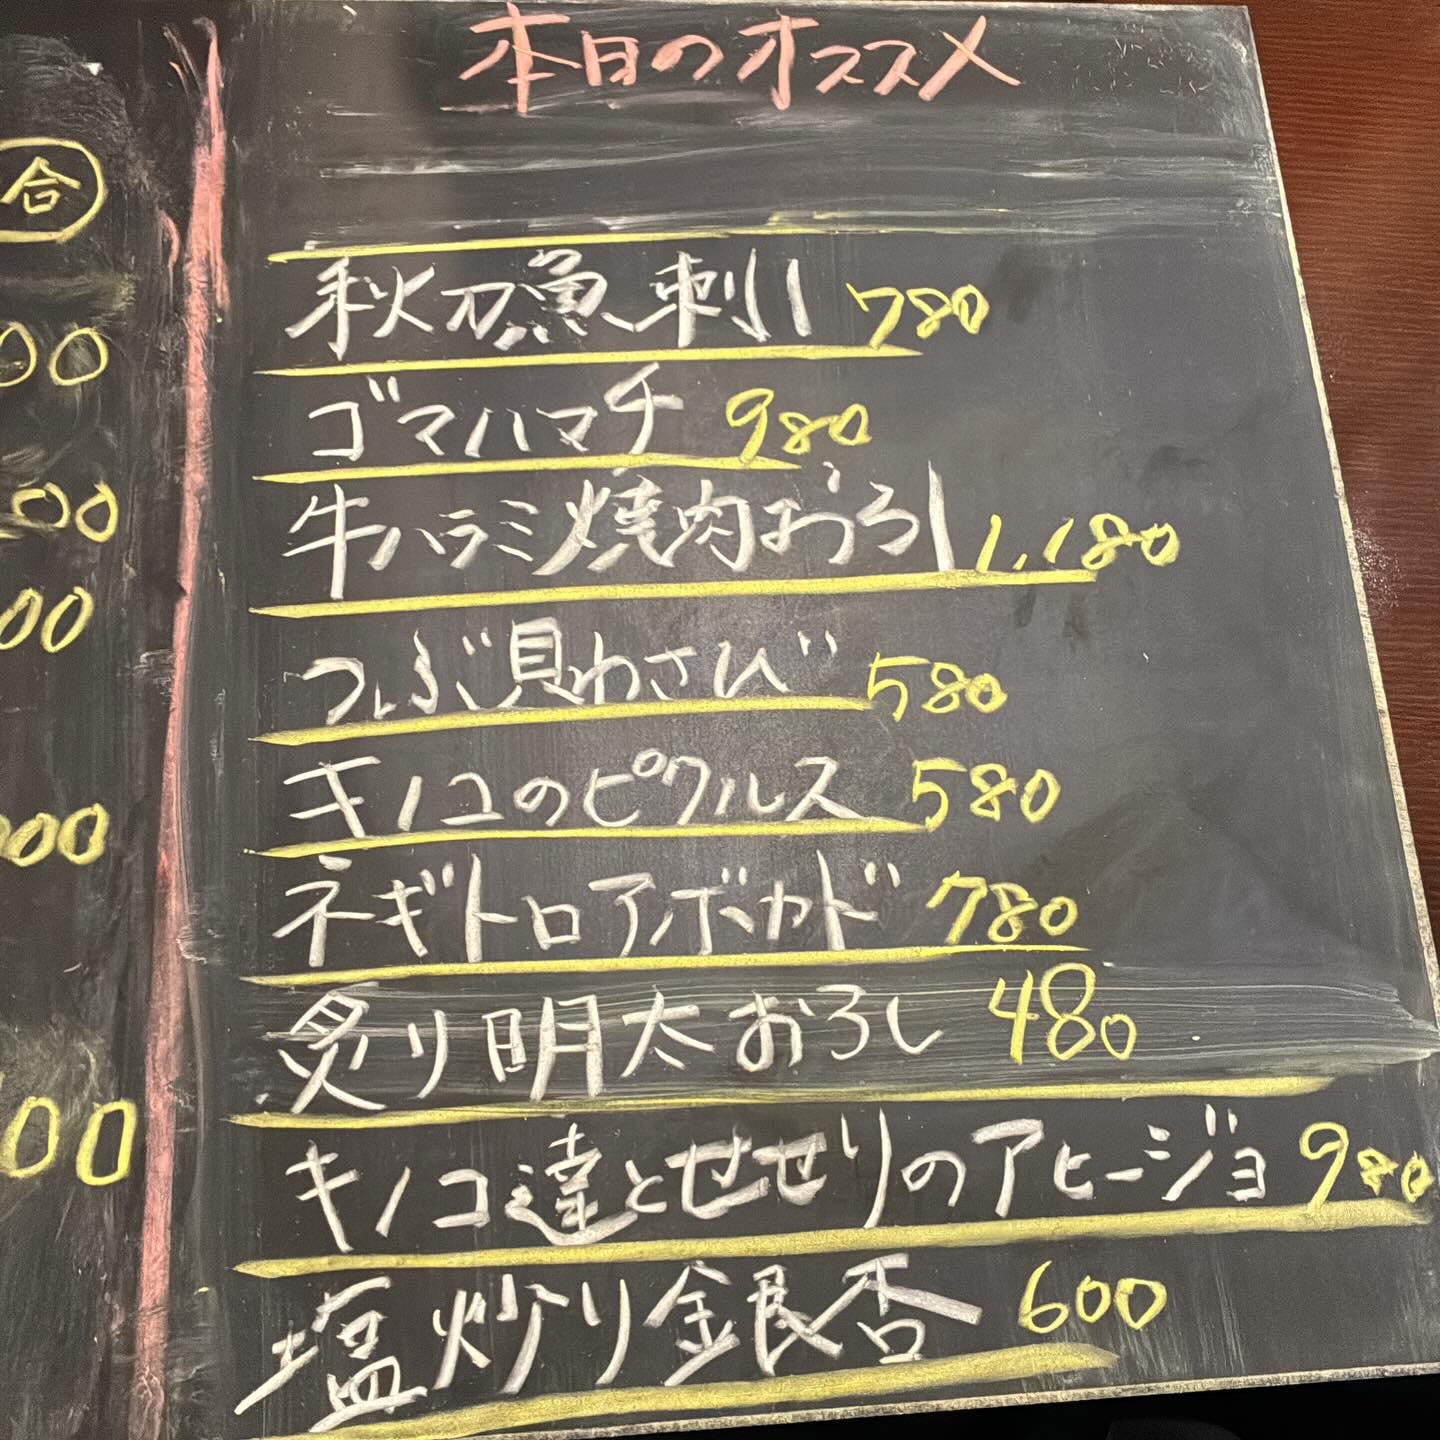 本日のオススメ
合
秋刀魚刺し 780
00
ゴマハマチ 980
牛ハラミ焼肉おろし 1,180
00
つぶ貝わさび 580
00
キノコのピクルス 580
000
ネギトロアボカド 780
炙り明太おろし 480
キノコ達とせせりのアヒージョ 980
00
塩炒り銀杏 600